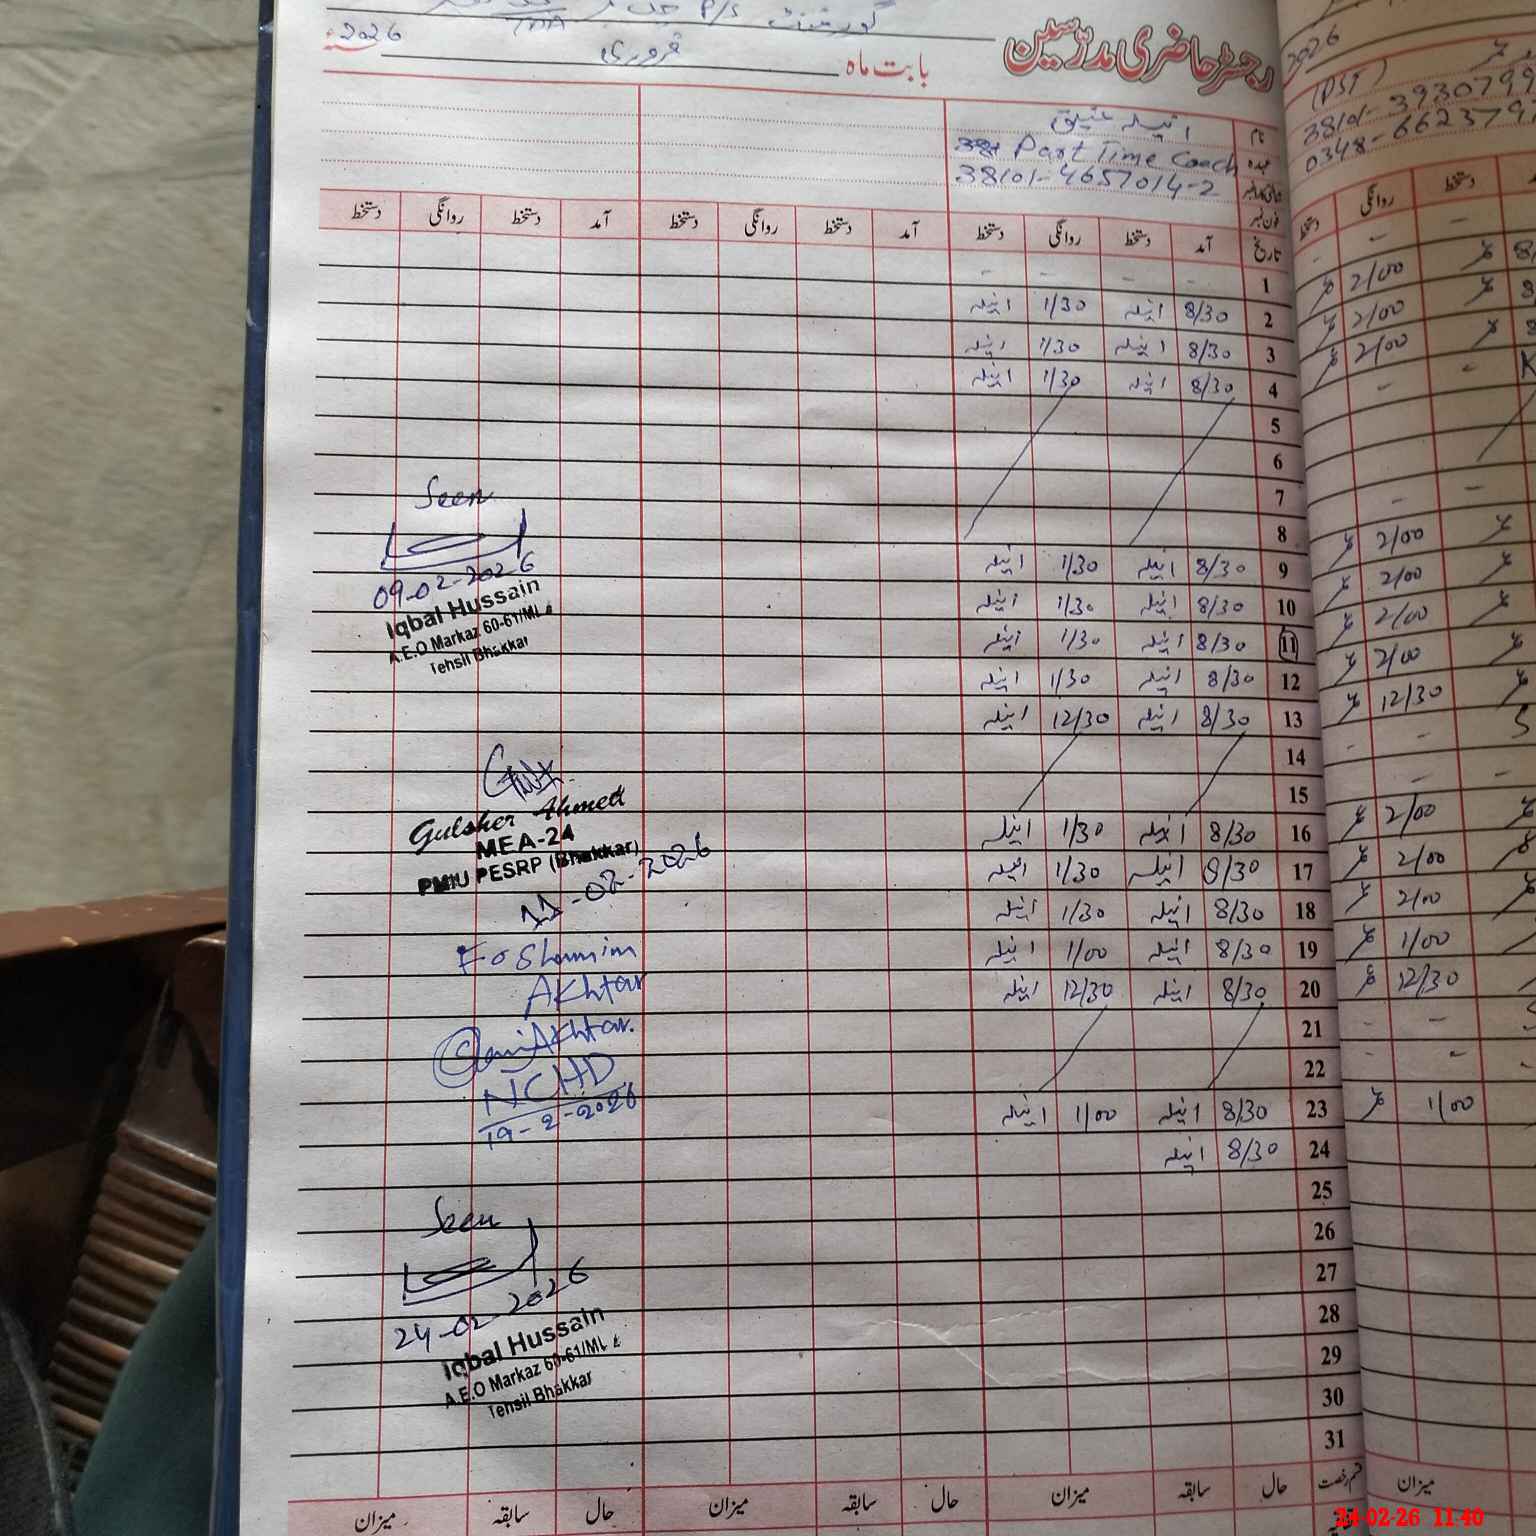 رجسٹر حاضری مدرسین
گورنمنٹ P/S
بابت ماہ فروری 2026ء
نام انیلہ عتیق
عہدہ Part Time Coach
شناختی کارڈ نمبر 38101-4657014-2
فون نمبر
تاریخ آمد دستخط روانگی دستخط آمد دستخط روانگی دستخط آمد دستخط روانگی دستخط
1 - - - -
2 8/30 انیلہ 1/30 انیلہ
3 8/30 انیلہ 1/30 انیلہ
4 8/30 انیلہ 1/30 انیلہ
5
6
7
8
9 8/30 انیلہ 1/30 انیلہ
10 8/30 انیلہ 1/30 انیلہ
11 8/30 انیلہ 1/30 انیلہ
12 8/30 انیلہ 1/30 انیلہ
13 8/30 انیلہ 12/30 انیلہ
14
15
16 8/30 انیلہ 1/30 انیلہ
17 8/30 انیلہ 1/30 انیلہ
18 8/30 انیلہ 1/30 انیلہ
19 8/30 انیلہ 1/00 انیلہ
20 8/30 انیلہ 12/30 انیلہ
21
22
23 8/30 انیلہ 1/00 انیلہ
24 8/30 انیلہ
25
26
27
28
29
30
31
قسم رخصت حال سابقہ میزان حال سابقہ میزان حال سابقہ میزان
Seen
09-02-2026
Iqbal Hussain
A.E.O Markaz 60-61/ML
Tehsil Bhakkar
Gulsher Ahmed
MEA-24
PMIU PESRP (Bhakkar)
11-02-2026
F o Shamim
Akhtar
Akhtar.
NCHD
19-2-2026
Seen
24-02-2026
Iqbal Hussain
A.E.O Markaz 60-61/ML
Tehsil Bhakkar
2026
(PST)
38101-3930799
0348-662379
دستخط روانگی دستخط
2/00
2/00
2/00
2/00
2/00
2/00
2/00
12/30
2/00
2/00
2/00
1/00
12/30
1/00
میزان
24-02-26 11:40